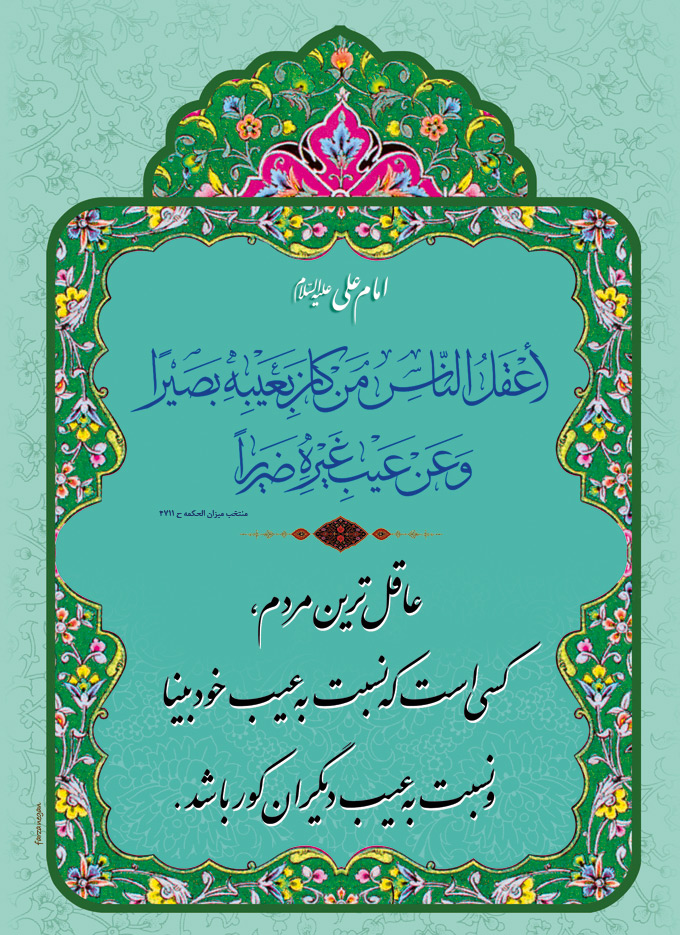 امام علی علیه السّلام
أَعْقَلُ النَّاسِ مَنْ كَانَ بِعَيْبِهِ بَصِيرًا
وَعَنْ عَيْبِ غَيْرِهِ ضَرِيرًا
منتخب میزان الحکمه ح ۴۷۱۱
عاقل‌ترین مردم،
کسی است که نسبت به عیب خود بینا
و نسبت به عیب دیگران کور باشد.
farzanegan